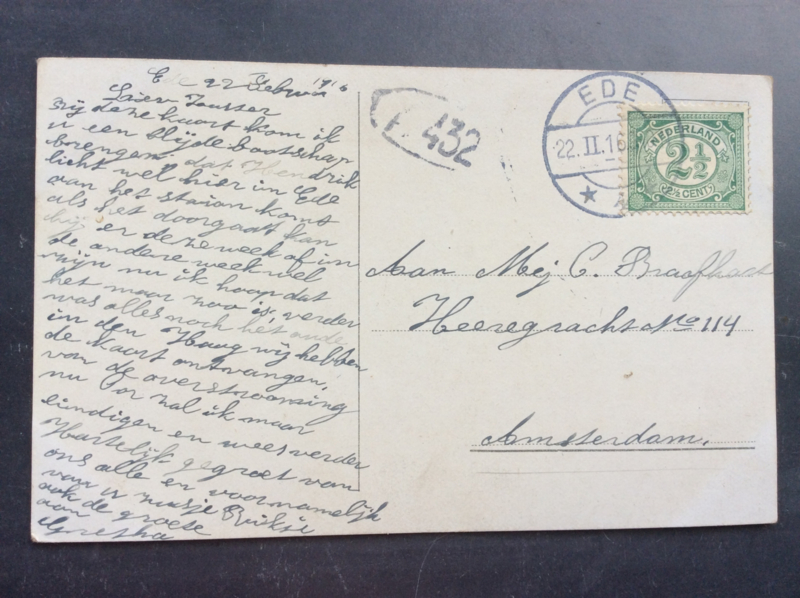 E 22 Februari 1916
Lieve Zusster
Bij deze kaart kom ik
u een blijde bootschap
brengen, dat Hendrik
licht wel hier in Ede
van het staion komt
als het doorgaat kan
hij er deze week of in
de andere week wel
zijn nu ik hoop dat
het maar zoo is, verder
was alles noch het oude
in den Haag wij hebben
de kaart ontvangen,
van de overstrooming
nu Cor zal ik maar
eindigen en wees verder
Hartelijk gegroet van
ons alle en voornamelijk
van u zusje Rikst
ook de groete
aan
Gretha
432
EDE
22.II.16
NEDERLAND
2½
2½ CENT
Aan Mej C. Braafhart
Heeregracht No 114
Amsterdam.